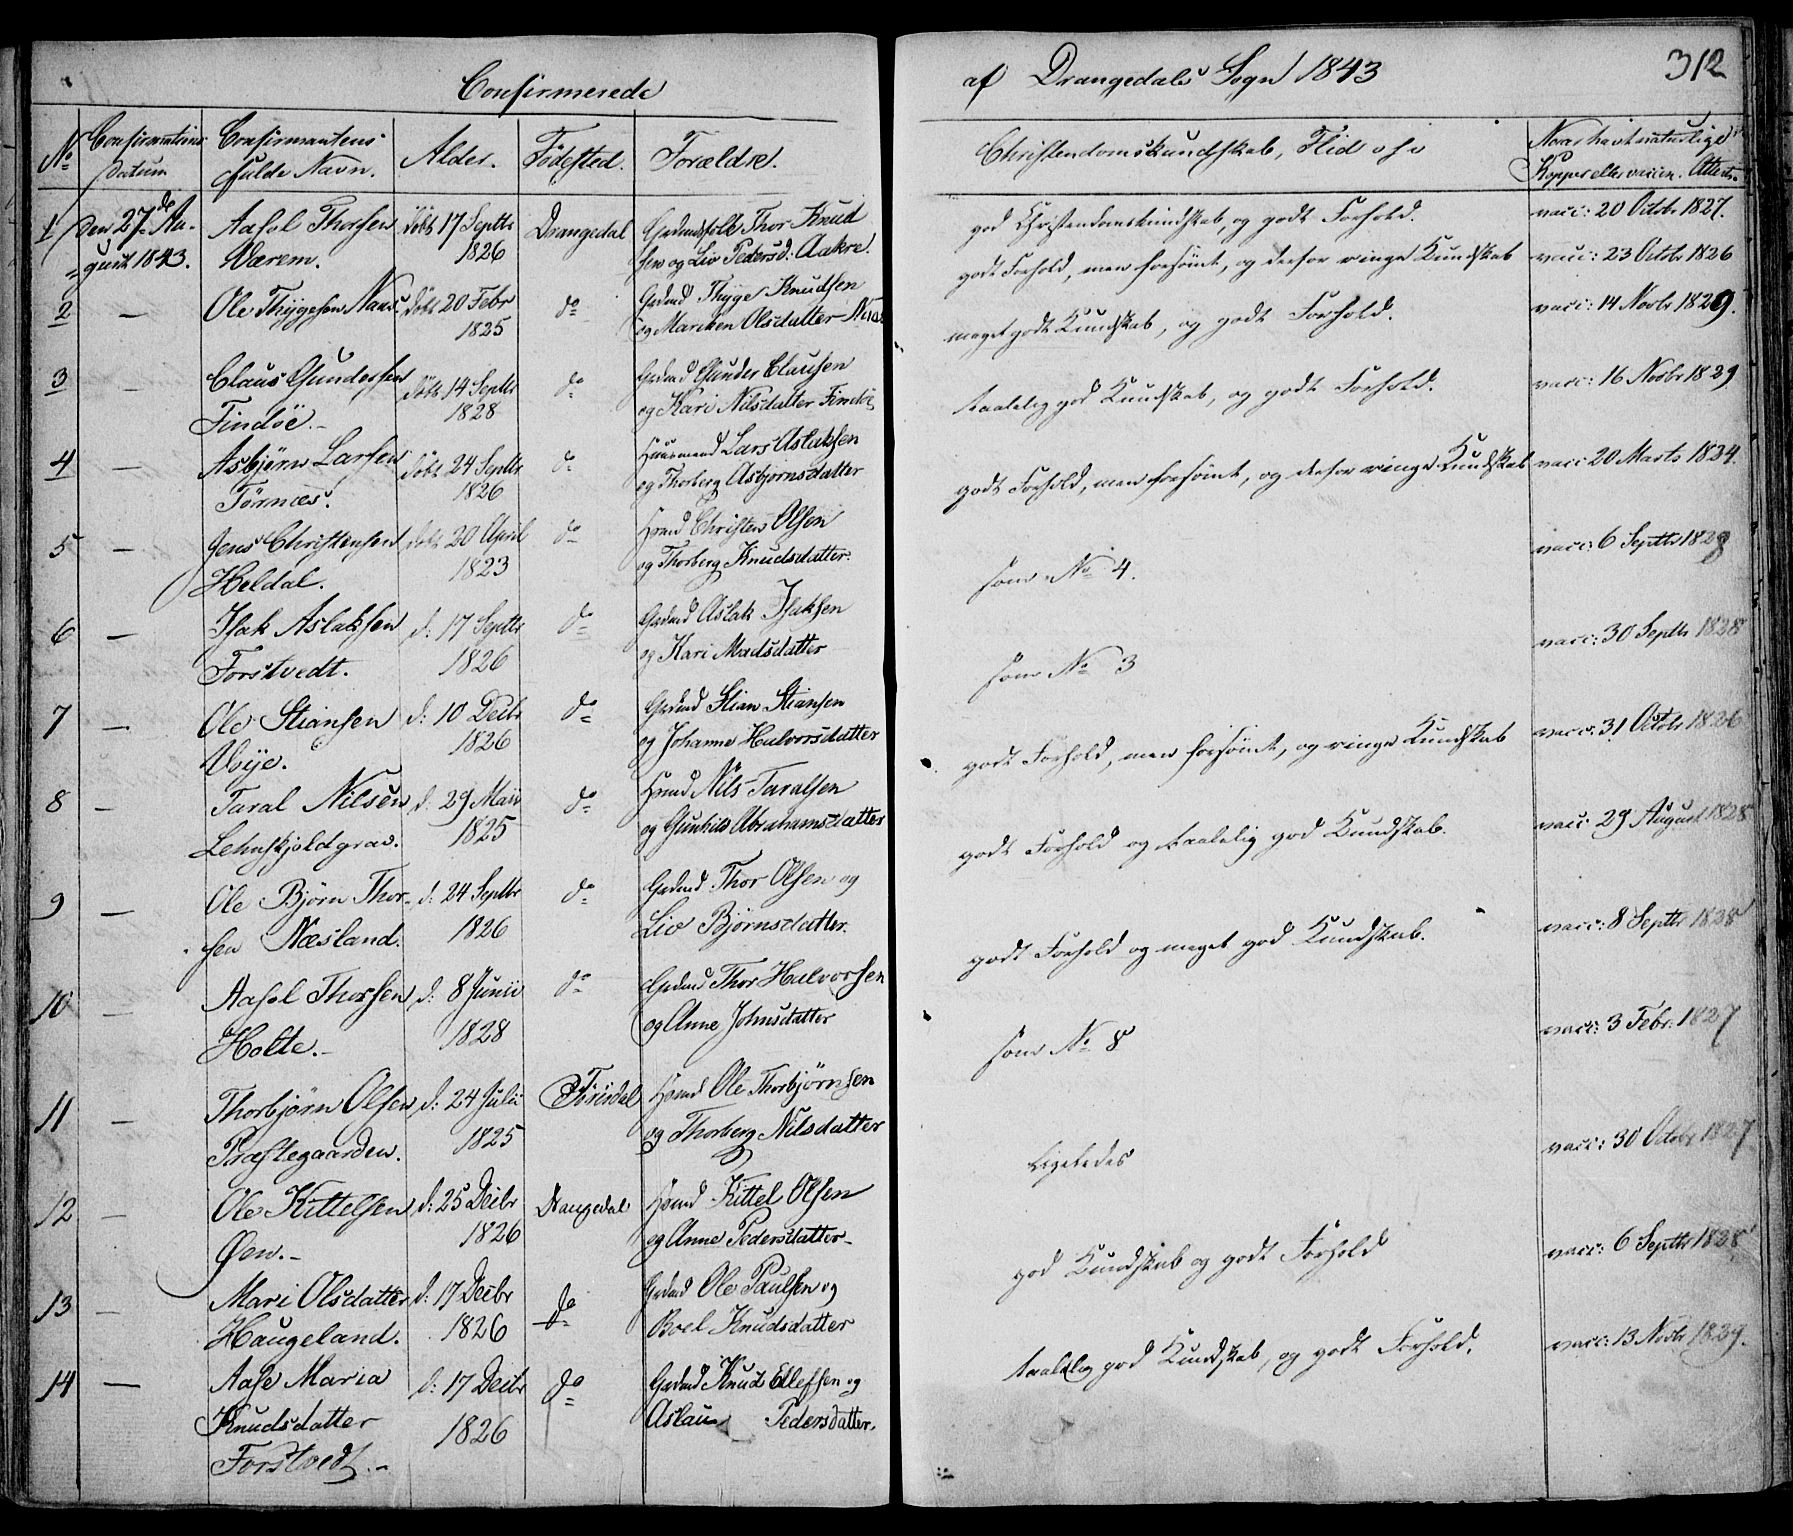 Confirmerede
No
Confirmations
Datum
Confirmantens
fulde Navn.
Alder.
Fødested.
Forældre.
1
Den 27de Au-
gust 1843.
Aasol Thorsen
Værem.
døbt 17 Septbr
1826
Drangedal
Gaardmfolk Thor Knud
sen og Liv Pedersd: Aakre.
2
—
Ole Thygesen Naas.
døbt 20 Febr
1825
do
Gaardmd Thyge Knudsen
og Mariken Olsdatter Naas
3
—
Claus Gundersen
Findöe.-
døbt 14 Septbr
1828
do
Gaardmd Gunder Clausen
og Kari Nilsdatter Findöe
4
—
Asbjørn Larsen
Tørnæs.
døbt 24 Septbr
1826
do
Huusmand Lars Aslaksen
og Thorberg Asbjørnsdatter
5
—
Jens Christensen
Heldal.
døbt 20 April
1823
do
Hmd Christen Olsen
og Thorberg Knudsdatter.
6
—
Isak Aslaksen
Forstvedt.
d: 17 Septbr
1826
do
Gaardmd Aslak Isaksen
og Kari Madsdatter
7
—
Ole Stiansen
Voje.
d: 10 Decbr
1826
do
Gaardmd Stian Stiansen
og Johanne Halvorsdatter
8
—
Taral Nilsen
Lehnskjoldgrav.
d: 29 Maii
1825
do
Hmd Nils Taralsen
og Gunhild Abrahamsdatter
9
—
Ole Bjørn Thor-
sen Næsland.
d: 24 Septbr
1826
do
Gaardmd Thor Olsen og
Liv Bjørnsdatter.
10
—
Aasol Thorsen
Holte.-
d: 8 Junii
1828
do
Gaardmd Thor Halvorsen
og Anne Johnsdatter
11
—
Thorbjørn Olsen
Præstegaarden.
d: 24 Julii
1825
Tørrisdal
Hmd Ole Thorbjørnsen
og Thorberg Nilsdatter
12
—
Ole Kittelsen
Øen.-
d: 25 Decbr
1826
Drangedal
Hmd Kittel Olsen
og Anne Pedersdatter-
13
—
Mari Olsdatter
Haugeland.
d: 17 Decbr
1826
do
Gaardmd Ole Paulsen og
Boel Knudsdatter
14
—
Aase Maria
Knudsdatter
Forstvedt.-
d: 17 Decbr
1826
do
Gaardmd Knud Ellefsen og
Aslau Pedersdatter.
af Drangedals Sogn 1843
312
Christendomskundskab, Flid osv
Naar havt naturlige
Kopper eller vaccin. Attest.
god Christendomskundskab, og godt Forhold.
vacc: 20 Octbr 1827.
godt Forhold, men forsömt, og derfor ringe Kundskab
vacc: 23 Octbr 1826
meget godt Kundskab, og godt Forhold.
vacc: 14 Novbr 1829.
taalelig god Kundskab, og godt Forhold.
vacc: 16 Novbr 1829
godt Forhold, men forsömt, og derfor ringe Kundskab
vacc: 20 Marts 1824.
som No 4.
vacc: 6 Septbr 1828
som No 3
vacc: 30 Septbr 1828
godt Forhold, men forsömt, og ringe Kundskab
vacc: 31 Octbr 1826
godt Forhold og taalelig god Kundskab.
vacc: 29 August 1828
godt Forhold og meget god Kundskab.
vacc: 8 Septbr 1828
som No 8
vacc: 3 Febr: 1827
Ligeledes
vacc: 30 Octbr 1827
god Kundskab og godt Forhold
vacc: 6 Septbr 1828
taalelig god Kundskab, og godt Forhold.
vacc: 13 Novbr 1829.